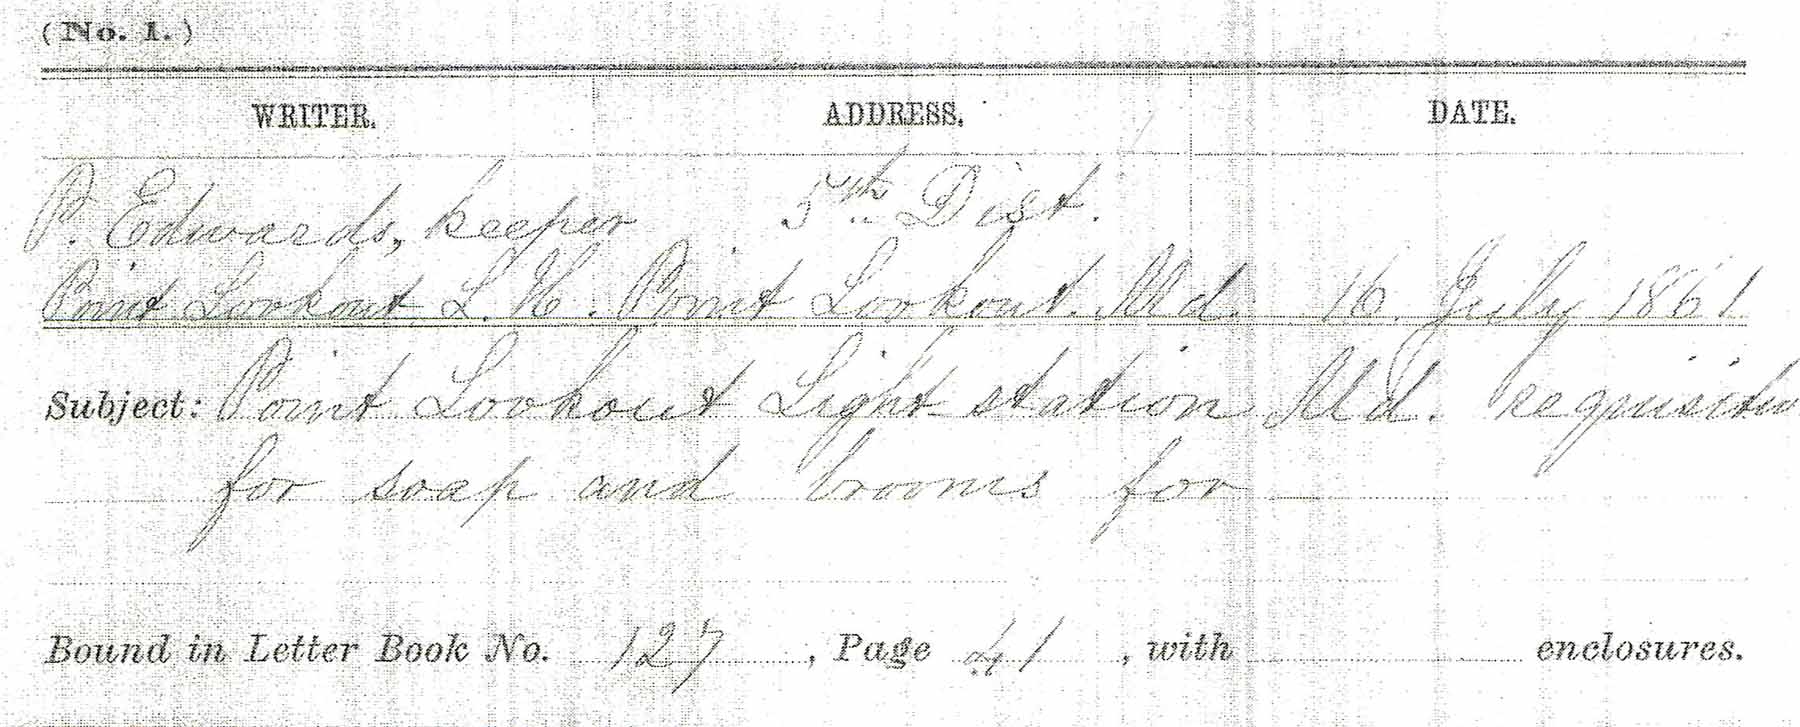 (No. 1.)
WRITER. ADDRESS. DATE.
P. Edwards, keeper 5th Dist.
Point Lookout L. H. Point Lookout. Md. 16 July 1861
Subject: Point Lookout Light station Md. requisition
for soap and brooms for —
Bound in Letter Book No. 127, Page 41, with enclosures.